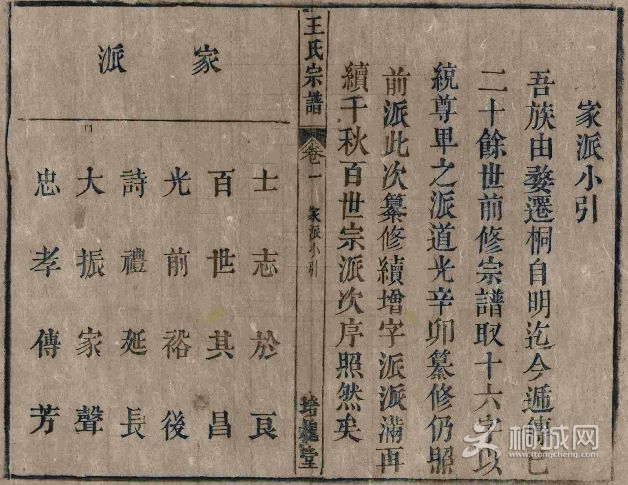 家派小引
吾族由婺遷桐自明迄今遞傳已
二十餘世前修宗譜取十六字以
統尊卑之派道光辛卯纂修仍照
前派此次纂修續增字派派滿再
續千秋百世宗派次序照然矣
王氏宗譜
卷一
家派小引
堂
家派
士志於良
百世其昌
光前裕後
詩禮延長
大振家聲
忠孝傳芳
桐城网
itongcheng.com